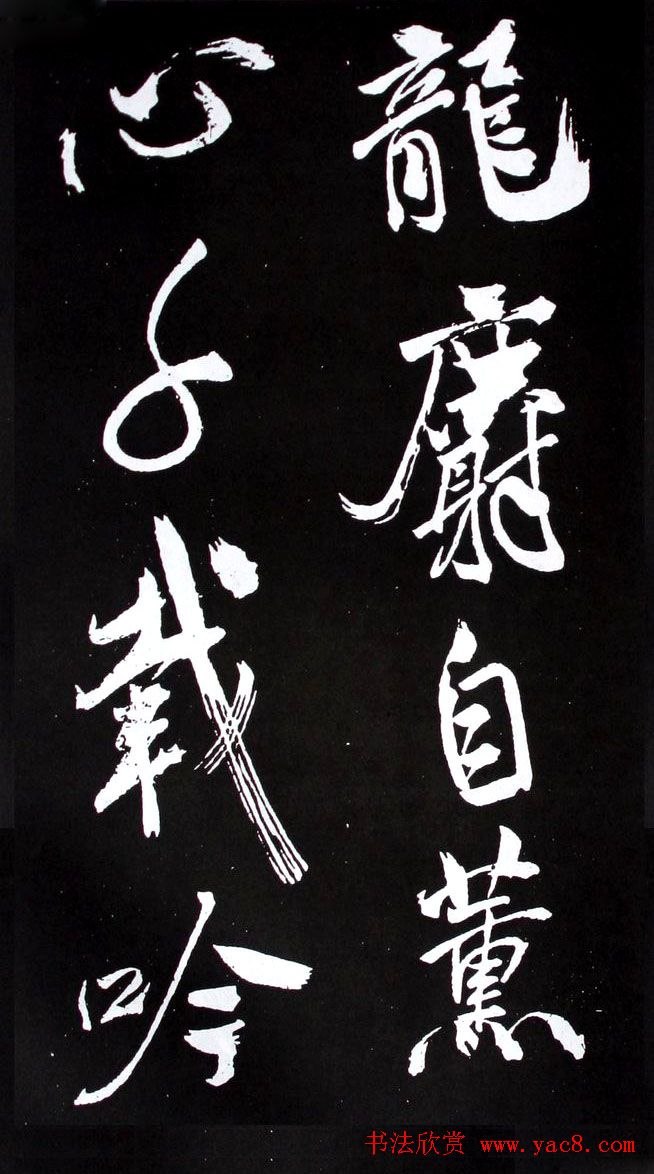 龍麝自薰
心千載吟
书法欣赏 www.yac8.com